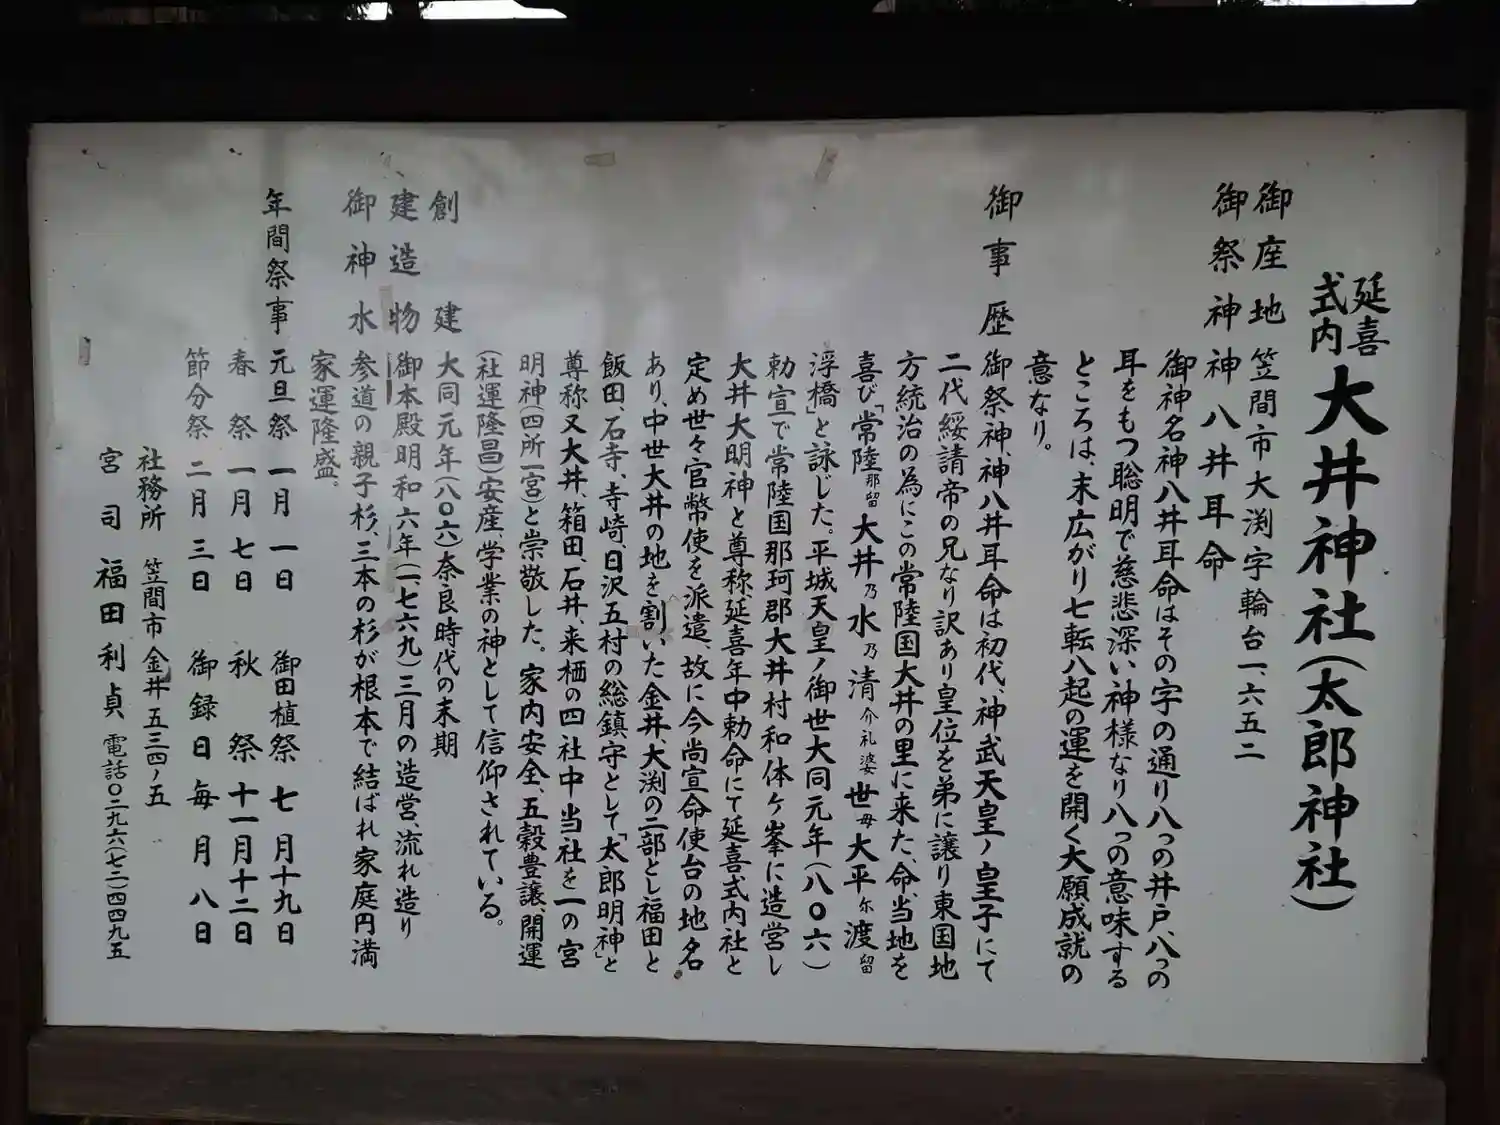 延喜式内 大井神社(太郎神社)
御座地 笠間市大渕字輪台一、六五二
御祭神 神八井耳命
御神名神八井耳命はその字の通り八つの井戸、八つの
耳をもつ聡明で慈悲深い神様なり八つの意味する
ところは、末広がり七転八起の運を開く大願成就の
意なり。
御事歴 御祭神、神八井耳命は初代、神武天皇ノ皇子にて
二代綏請帝の兄なり訳あり皇位を弟に譲り東国地
方統治の為にこの常陸国大井の里に来た、命、当地を
喜び「常陸那留大井乃水乃清介礼婆世毎大平尓渡留
浮橋」と詠じた。平城天皇ノ御世大同元年(八〇六)
勅宣で常陸国那珂郡大井村和体ケ峯に造営し
大井大明神と尊称延喜年中勅命にて延喜式内社と
定め世々官幣使を派遣、故に今尚宣命使台の地名
あり、中世大井の地を割いた金井大渕の二部とし福田と
飯田、石寺、寺崎、日沢五村の総鎮守として「太郎明神」と
尊称又大井、箱田、石井、来栖の四社中当社を一の宮
明神(四所一宮)と崇敬した。家内安全、五穀豊譲、開運
(社運隆昌)安産、学業の神として信仰されている。
創建 大同元年(八〇六)奈良時代の末期
建造物 御本殿明和六年(一、七六九)三月の造営、流れ造り
御神水 参道の親子杉、三本の杉が根本で結ばれ家庭円満
家運隆盛。
年間祭事 元旦祭 一月一日 御田植祭 七月十九日
春祭 一月七日 秋祭 十一月十二日
節分祭 二月三日 御録日 毎月八日
社務所 笠間市金井五三四ノ五
宮司 福田利貞 電話〇二九六(七二)四四九五